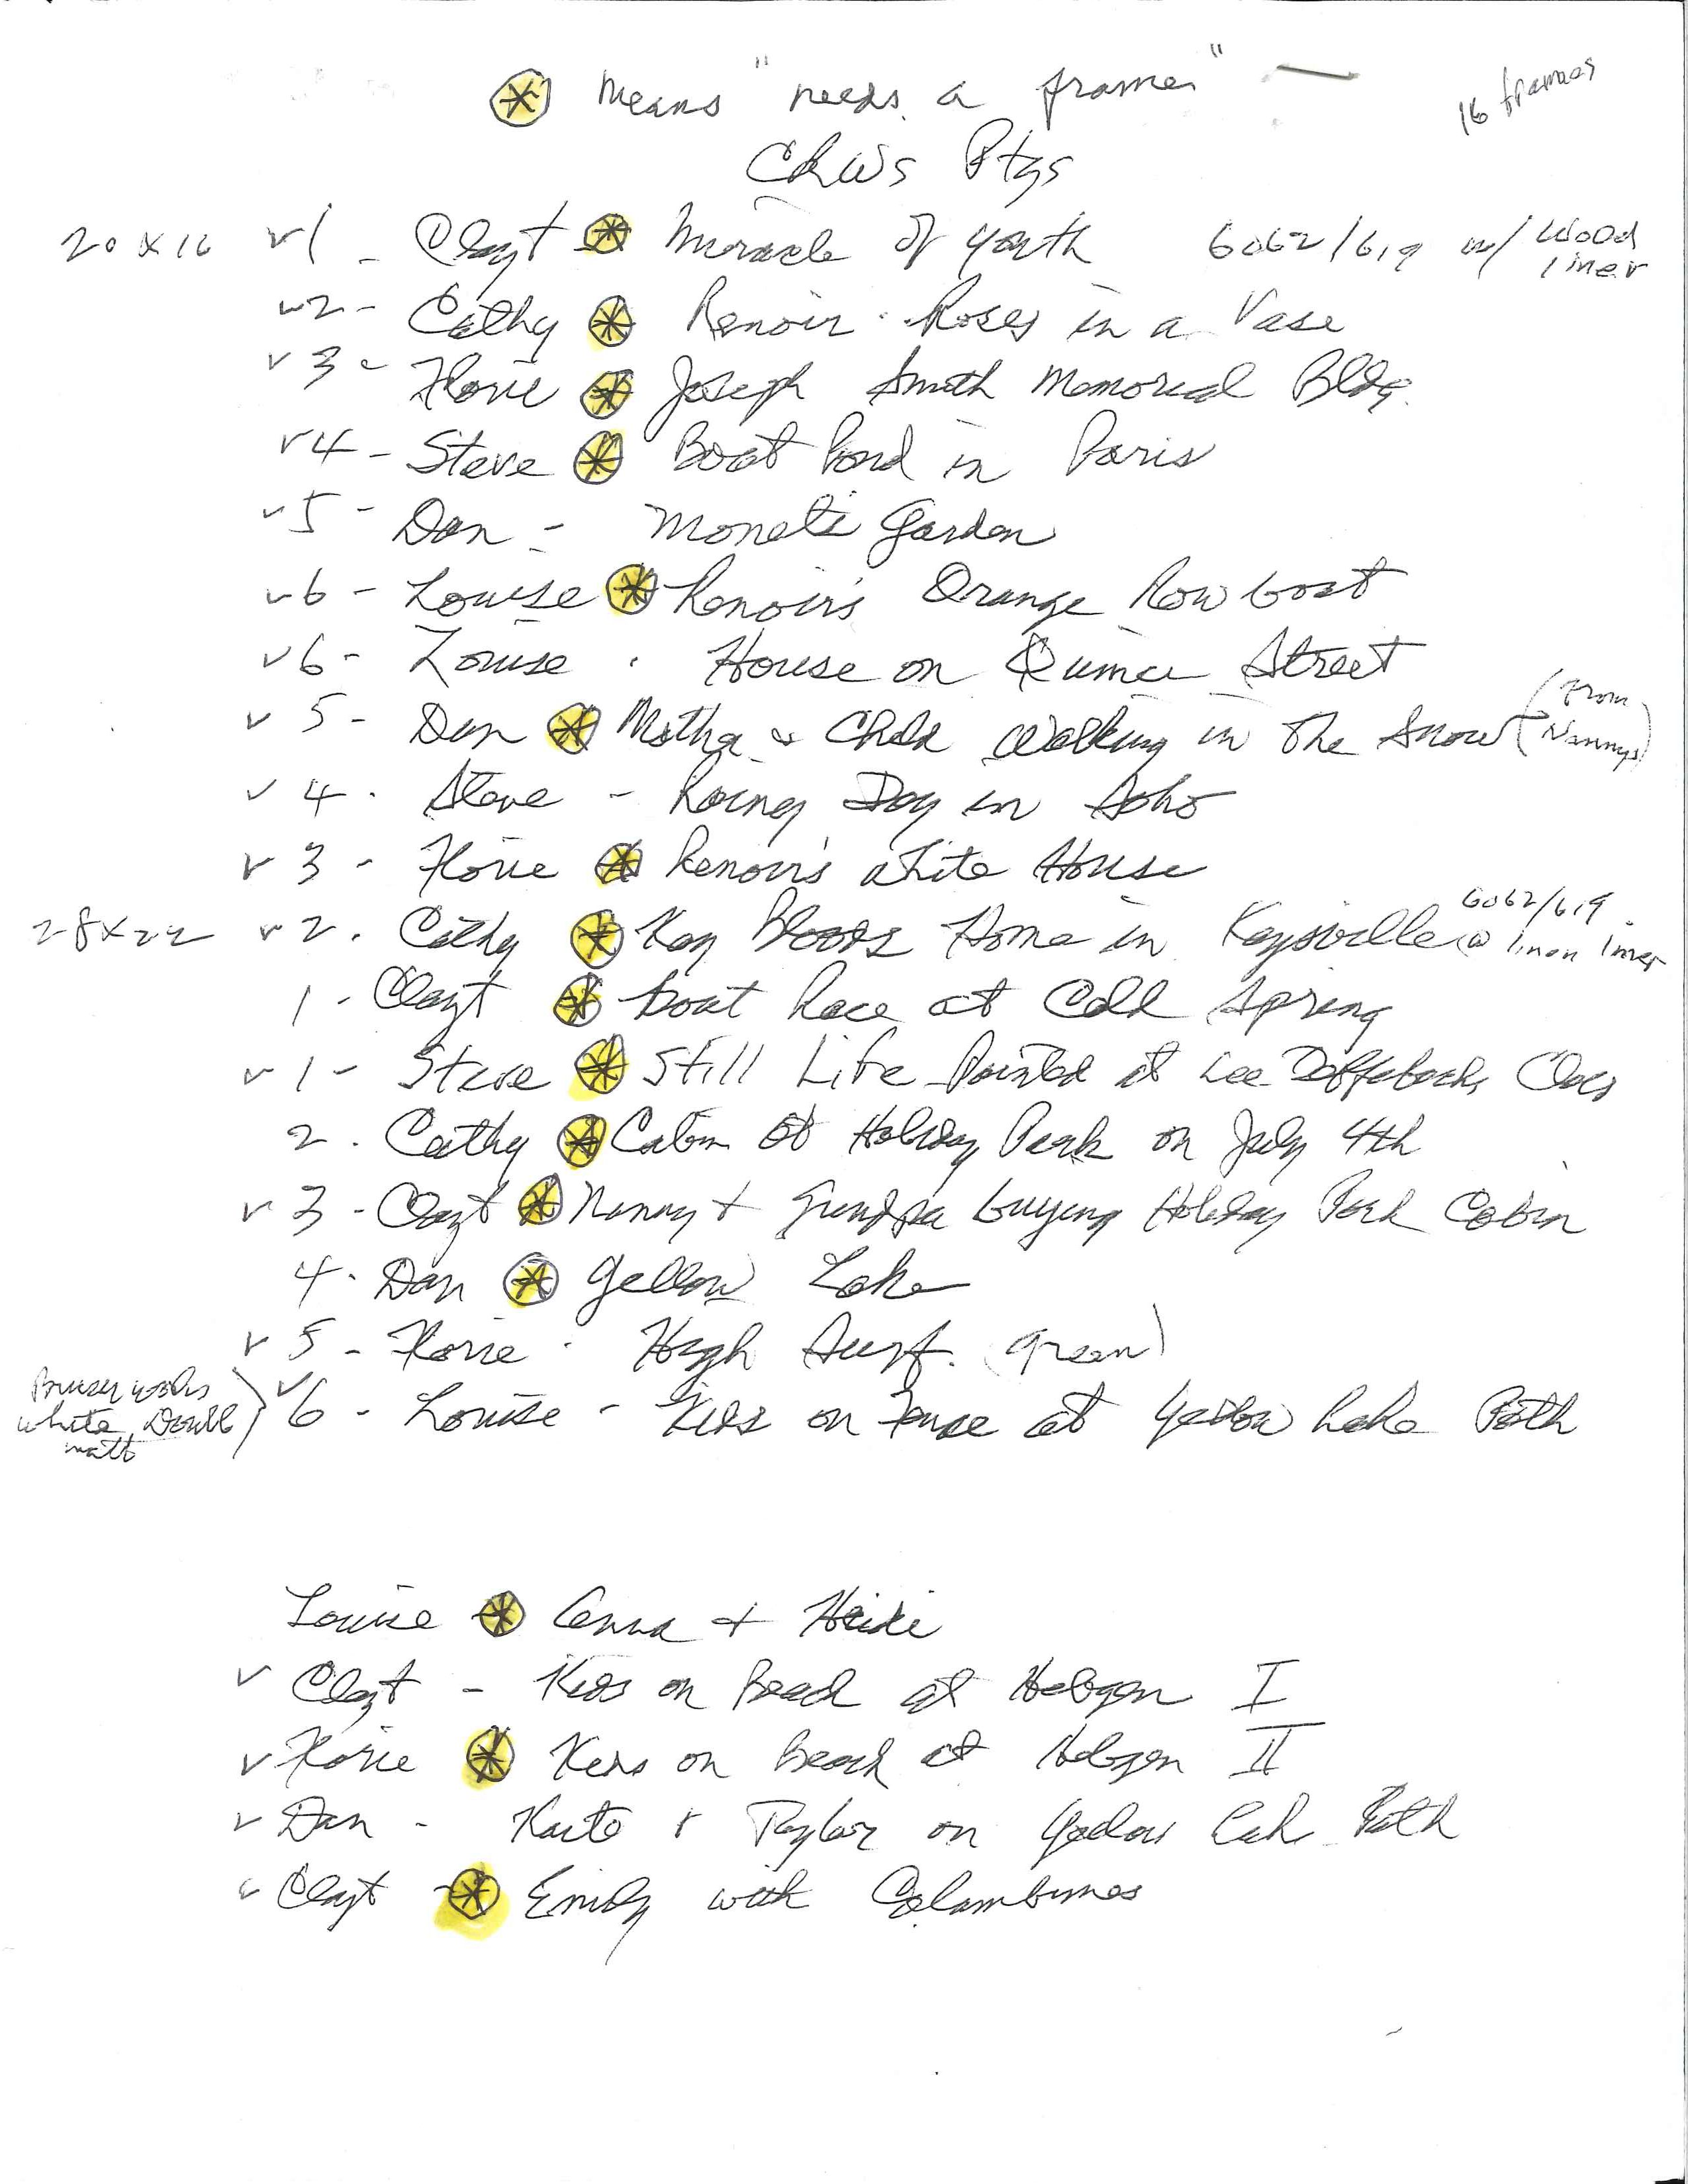 ⊛ means "needs a frame" —
16 frames
CRWs Ptgs
20 x 16 v1 - Clayt ⊛ Miracle of Youth 6062/619 w/ Wood liner
v2 - Cathy ⊛ Renoir Roses in a Vase
v3 - Florie ⊛ Joseph Smith Memorial Bldg.
v4 - Steve ⊛ Boat Pond in Paris
v5 - Dan - Monets Garden
v6 - Louise ⊛ Renoir's Orange Row boat
v6 - Louise . House on Street
v5 - Dan ⊛ Mother & Child Walking in The Snow (From Nannys)
v4 . Steve - Rainey Day in Soho
v3 - Florie ⊛ Renoir's White House
28x22 v2 . Cathy ⊛ Kay Bloods Home in Kaysville @ 6062/619 linen liner
1 - Clayt ⊛ Boat Race at Cold Spring
v1 - Steve ⊛ Still Life Painted at Lee Class
2 . Cathy ⊛ Cabin at Holiday Park on July 4th
v3 - Clayt ⊛ Nanny + Grandpa buying Holiday Park Cabin
4 . Dan ⊛ Yellow Lake
v5 - Florie . High (green)
white Double matt) v6 - Louise - Kids on at Yellow Lake Path
Louise ⊛ + Heidi
v Clayt - Kids on Beach at Hebgen I
v Florie ⊛ Kids on Beach at Hebgen II
v Dan - & Taylor on Yellow Lake Path
v Clayt - ⊛ Emily with Columbines